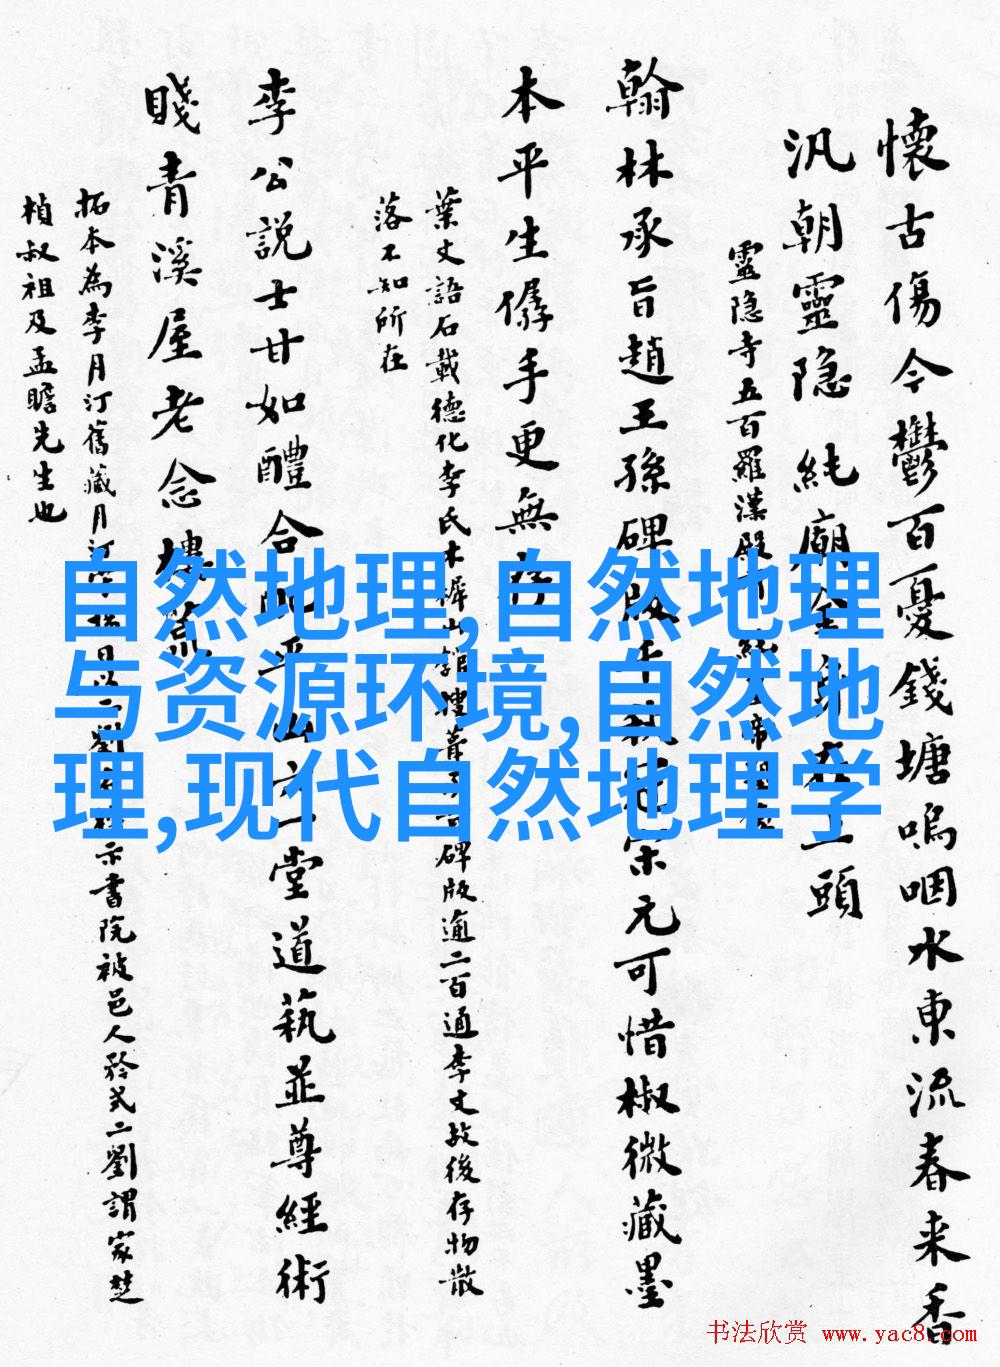 懷古傷今鬱百憂錢塘嗚咽水東流春来香
汎朝靈隐純廟金身在上頭
靈隐寺五百羅漢殿
翰林承旨趙王孫碑版千秋冠宋元可惜椒微藏墨
本平生儔手更無存
葉文語石載德化李氏木犀山館瞍葊碑版逾二百通李文故後存物散
落不知所在
李公説士甘如醴合配平山六一堂道蓺並尊經術
賤青溪屋老念
拓本為李月汀舊藏月汀示書院被邑人矜式二劉謂家楚
楨叔祖及孟瞻先生也
自然地理,自然地理
与资源环境,自然地
理,现代自然地理学
书法欣赏 www.yac8.com